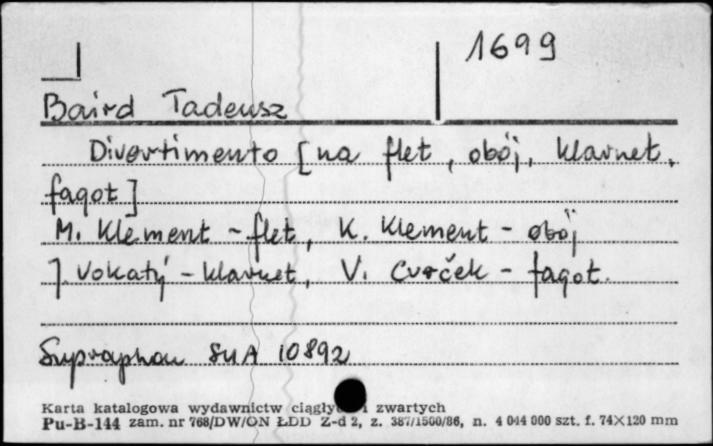 1699
Baird Tadeusz
Divertimento [na flet, obój, klarnet,
fagot]
M. Klement - flet, K. Klement - obój
J. Vokatý - klarnet, V. Cvrček - fagot.
Supraphon SUA 10892
Karta katalogowa wydawnictw ciągłych i zwartych
Pu-B-144 zam. nr 768/DW/ON ŁDD Z-d 2, z. 387/1500/86, n. 4 044 000 szt. f. 74×120 mm